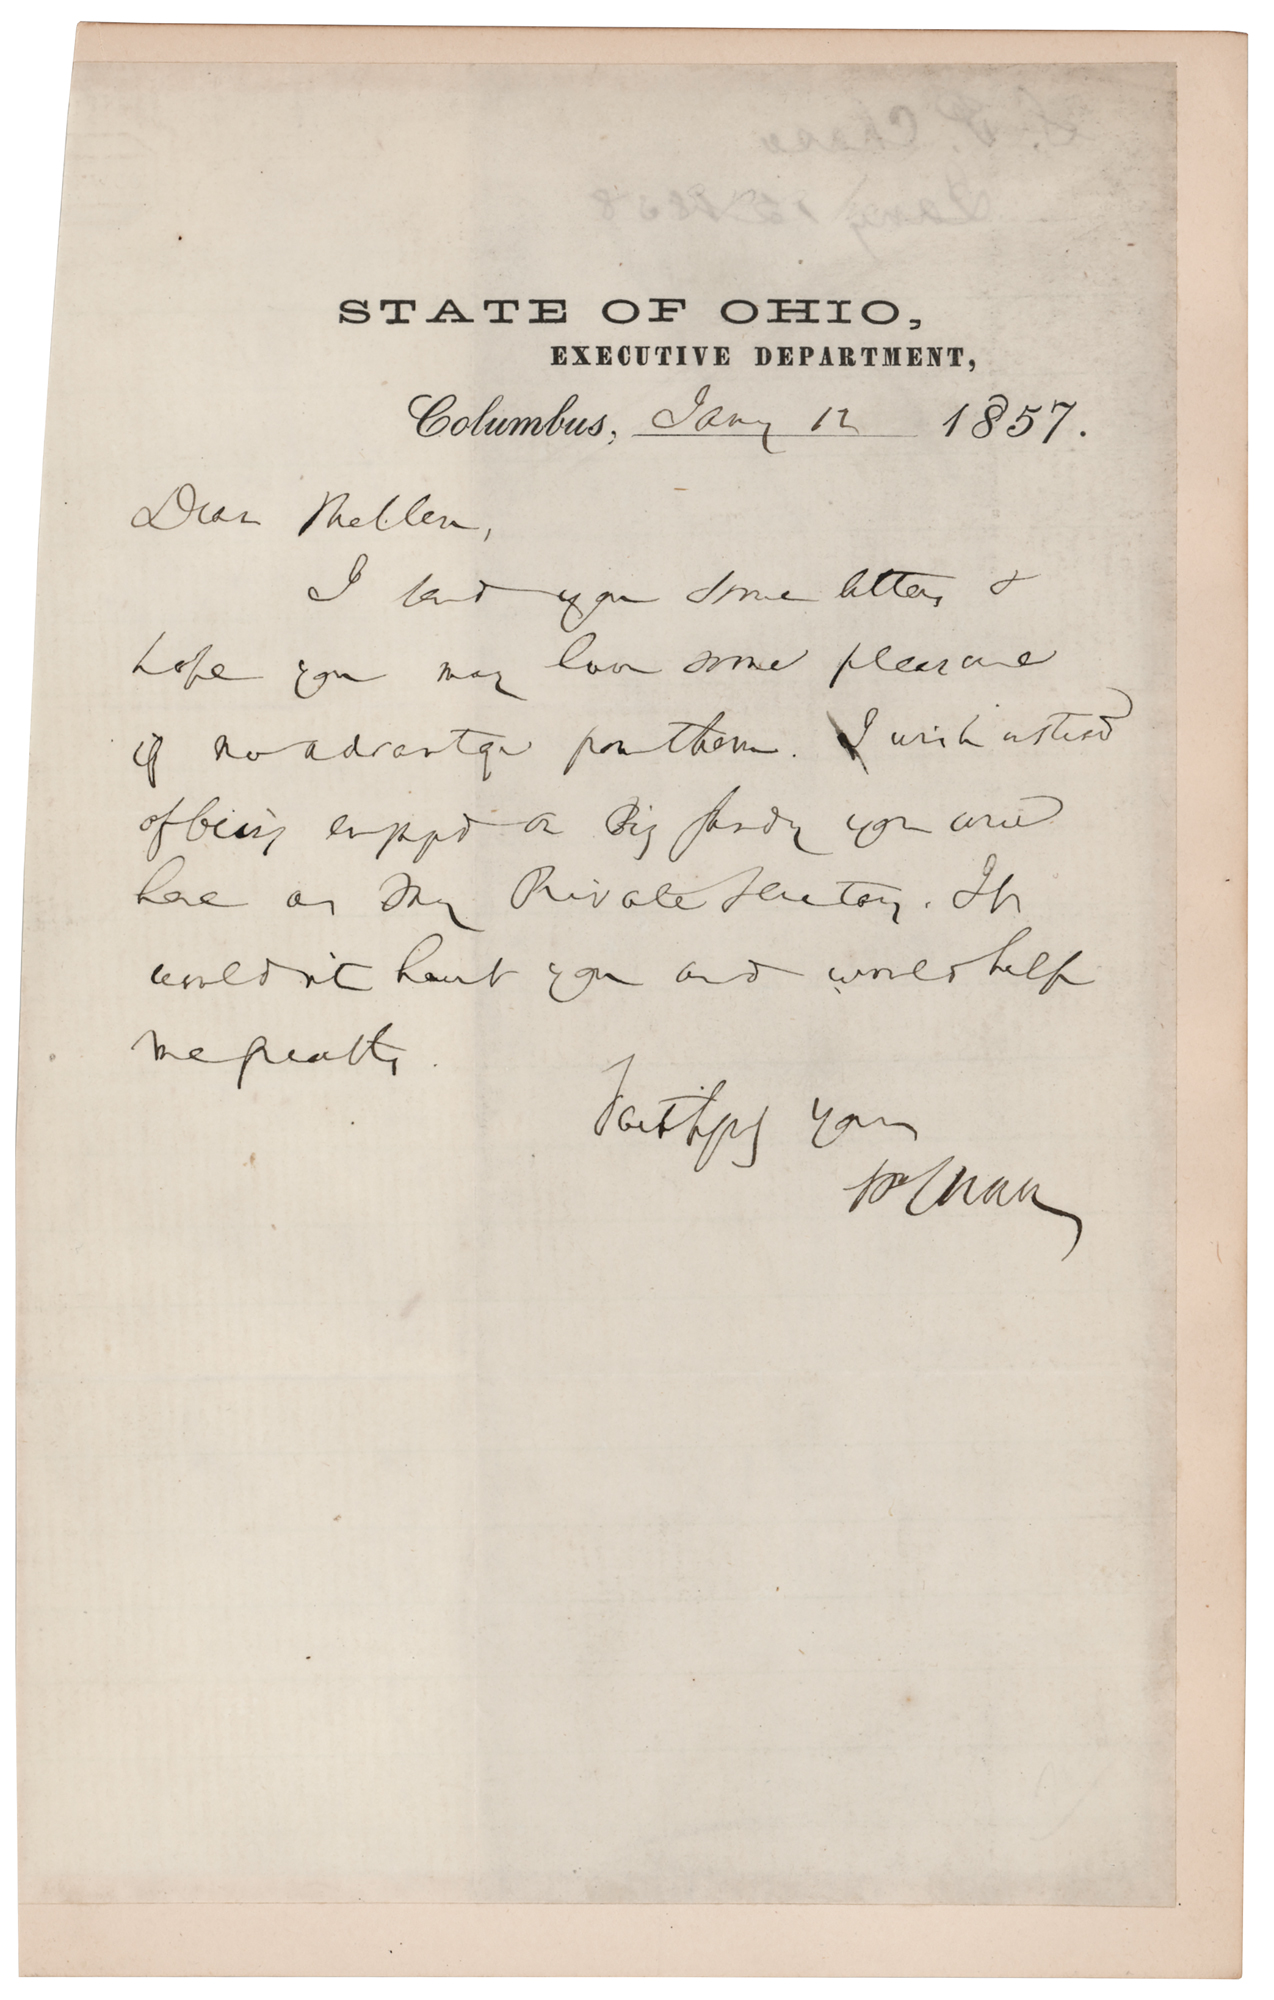 S. P. Chase
Jany 12 1858
STATE OF OHIO,
EXECUTIVE DEPARTMENT,
Columbus, Jany 12 1857.
Dear Mellen,
I send you some letters &
hope you may have some pleasure
if no advantage from them. I wish instead
of being engaged on Big Sandy you were
here as my Private Secretary. It
wouldn't hurt you and would help
me greatly.
Faithfully yours
SPChase